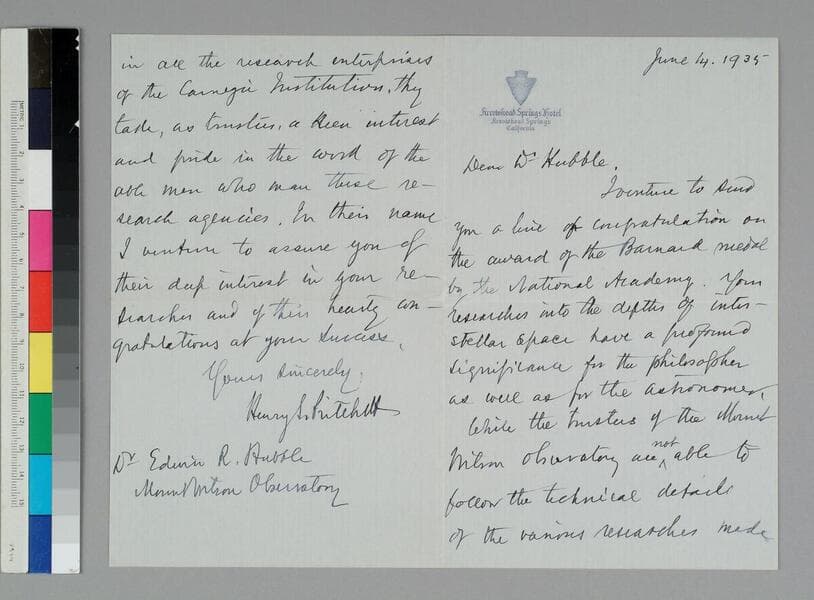 June 14. 1935
Arrowhead Springs Hotel
Arrowhead Springs
California
Dear Dr Hubble.
I venture to send
you a line of congratulation on
the award of the Barnard medal
by the National Academy. Your
researches into the depths of inter-
stellar space have a profound
significance for the philosopher
as well as for the astronomer.
While the trustees of the Mount
Wilson Observatory are not able to
follow the technical details
of the various researches made
in all the research enterprises
of the Carnegie Institution, they
take, as trustees, a keen interest
and pride in the work of the
able men who man these re-
search agencies. In their name
I venture to assure you of
their deep interest in your re-
searches and of their hearty con-
gratulations at your success.
Yours sincerely.
Henry S. Pritchett
Dr Edwin R. Hubble
Mount Wilson Observatory